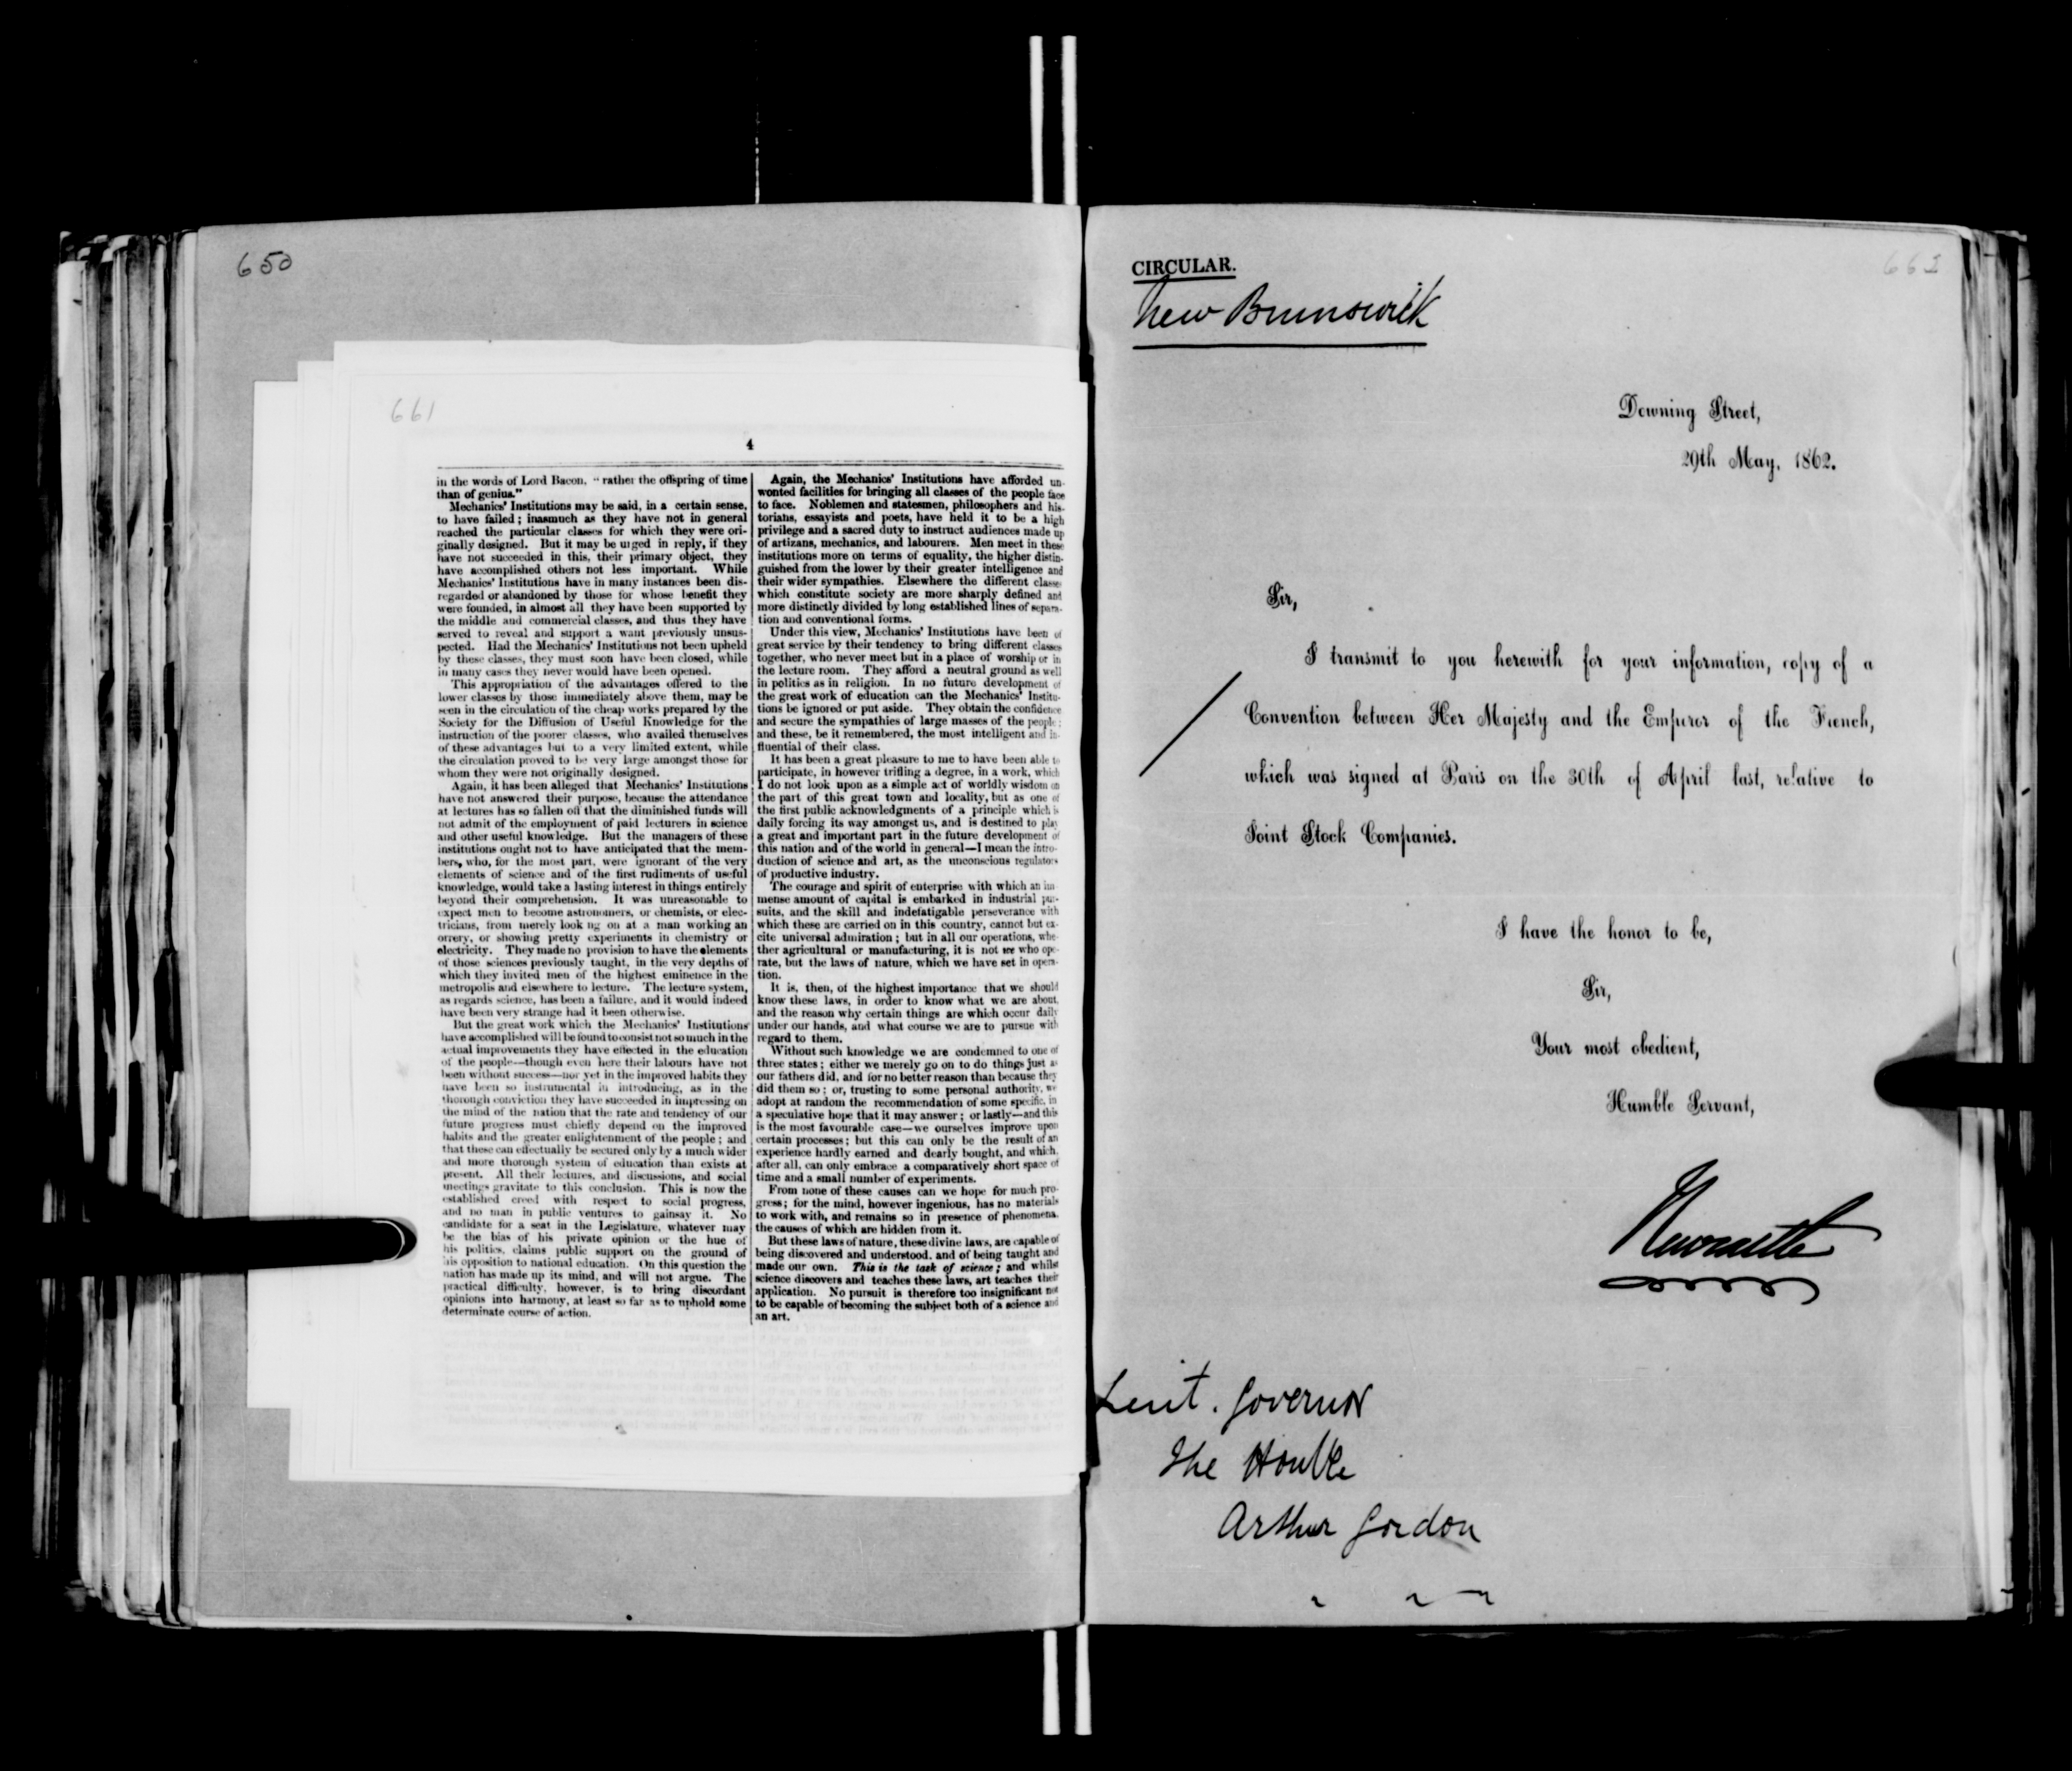 650
661
4
in the words of Lord Bacon, "rather the offspring of time
than of genius."
Mechanics' Institutions may be said, in a certain sense,
to have failed; inasmuch as they have not in general
reached the particular classes for which they were ori-
ginally designed. But it may be urged in reply, if they
have not succeeded in this, their primary object, they
have accomplished others not less important. While
Mechanics' Institutions have in many instances been dis-
regarded or abandoned by those for whose benefit they
were founded, in almost all they have been supported by
the middle and commercial classes, and thus they have
served to reveal and support a want previously unsus-
pected. Had the Mechanics' Institutions not been upheld
by these classes, they must soon have been closed, while
in many cases they never would have been opened.
This appropriation of the advantages offered to the
lower classes by those immediately above them, may be
seen in the circulation of the cheap works prepared by the
Society for the Diffusion of Useful Knowledge for the
instruction of the poorer classes, who availed themselves
of these advantages but to a very limited extent, while
the circulation proved to be very large amongst those for
whom they were not originally designed.
Again, it has been alleged that Mechanics' Institutions
have not answered their purpose, because the attendance
at lectures has so fallen off that the diminished funds will
not admit of the employment of paid lecturers in science
and other useful knowledge. But the managers of these
institutions ought not to have anticipated that the mem-
bers, who, for the most part, were ignorant of the very
elements of science and of the first rudiments of useful
knowledge, would take a lasting interest in things entirely
beyond their comprehension. It was unreasonable to
expect men to become astronomers, or chemists, or elec-
tricians, from merely look ng on at a man working an
orrery, or showing pretty experiments in chemistry or
electricity. They made no provision to have the elements
of those sciences previously taught, in the very depths of
which they invited men of the highest eminence in the
metropolis and elsewhere to lecture. The lecture system,
as regards science, has been a failure, and it would indeed
have been very strange had it been otherwise.
But the great work which the Mechanics' Institutions
have accomplished will be found to consist not so much in the
actual improvements they have effected in the education
of the people—though even here their labours have not
been without success—nor yet in the improved habits they
have been so instrumental in introducing, as in the
thorough conviction they have succeeded in impressing on
the mind of the nation that the rate and tendency of our
future progress must chiefly depend on the improved
habits and the greater enlightenment of the people; and
that these can effectually be secured only by a much wider
and more thorough system of education than exists at
present. All their lectures, and discussions, and social
meetings gravitate to this conclusion. This is now the
established creed with respect to social progress,
and no man in public ventures to gainsay it. No
candidate for a seat in the Legislature, whatever may
be the bias of his private opinion or the hue of
his politics, claims public support on the ground of
his opposition to national education. On this question the
nation has made up its mind, and will not argue. The
practical difficulty, however, is to bring discordant
opinions into harmony, at least so far as to uphold some
determinate course of action.
Again, the Mechanics' Institutions have afforded un-
wonted facilities for bringing all classes of the people face
to face. Noblemen and statesmen, philosophers and his-
torians, essayists and poets, have held it to be a high
privilege and a sacred duty to instruct audiences made up
of artizans, mechanics, and labourers. Men meet in these
institutions more on terms of equality, the higher distin-
guished from the lower by their greater intelligence and
their wider sympathies. Elsewhere the different classes
which constitute society are more sharply defined and
more distinctly divided by long established lines of separa-
tion and conventional forms.
Under this view, Mechanics' Institutions have been of
great service by their tendency to bring different classes
together, who never meet but in a place of worship or in
the lecture room. They afford a neutral ground as well
in politics as in religion. In no future development of
the great work of education can the Mechanics' Institu-
tions be ignored or put aside. They obtain the confidence
and secure the sympathies of large masses of the people;
and these, be it remembered, the most intelligent and in-
fluential of their class.
It has been a great pleasure to me to have been able to
participate, in however trifling a degree, in a work, which
I do not look upon as a simple act of worldly wisdom on
the part of this great town and locality, but as one of
the first public acknowledgments of a principle which is
daily forcing its way amongst us, and is destined to play
a great and important part in the future development of
this nation and of the world in general—I mean the intro-
duction of science and art, as the unconscious regulators
of productive industry.
The courage and spirit of enterprise with which an im-
mense amount of capital is embarked in industrial pur-
suits, and the skill and indefatigable perseverance with
which these are carried on in this country, cannot but ex-
cite universal admiration; but in all our operations, whe-
ther agricultural or manufacturing, it is not we who ope-
rate, but the laws of nature, which we have set in opera-
tion.
It is, then, of the highest importance that we should
know these laws, in order to know what we are about,
and the reason why certain things are which occur daily
under our hands, and what course we are to pursue with
regard to them.
Without such knowledge we are condemned to one of
three states; either we merely go on to do things just as
our fathers did, and for no better reason than because they
did them so; or, trusting to some personal authority, we
adopt at random the recommendation of some specific, in
a speculative hope that it may answer; or lastly—and this
is the most favourable case—we ourselves improve upon
certain processes; but this can only be the result of an
experience hardly earned and dearly bought, and which,
after all, can only embrace a comparatively short space of
time and a small number of experiments.
From none of these causes can we hope for much pro-
gress; for the mind, however ingenious, has no materials
to work with, and remains so in presence of phenomena,
the causes of which are hidden from it.
But these laws of nature, these divine laws, are capable of
being discovered and understood, and of being taught and
made our own. This is the task of science; and whilst
science discovers and teaches these laws, art teaches their
application. No pursuit is therefore too insignificant not
to be capable of becoming the subject both of a science and
an art.
662
CIRCULAR.
New Brunswick
Downing Street,
29th May, 1862.
Sir,
I transmit to you herewith for your information, copy of a
Convention between Her Majesty and the Emperor of the French,
which was signed at Paris on the 30th of April last, relative to
Joint Stock Companies.
I have the honor to be,
Sir,
Your most obedient,
Humble Servant,
Newcastle
Lieut. Governor
The Honble
Arthur Gordon